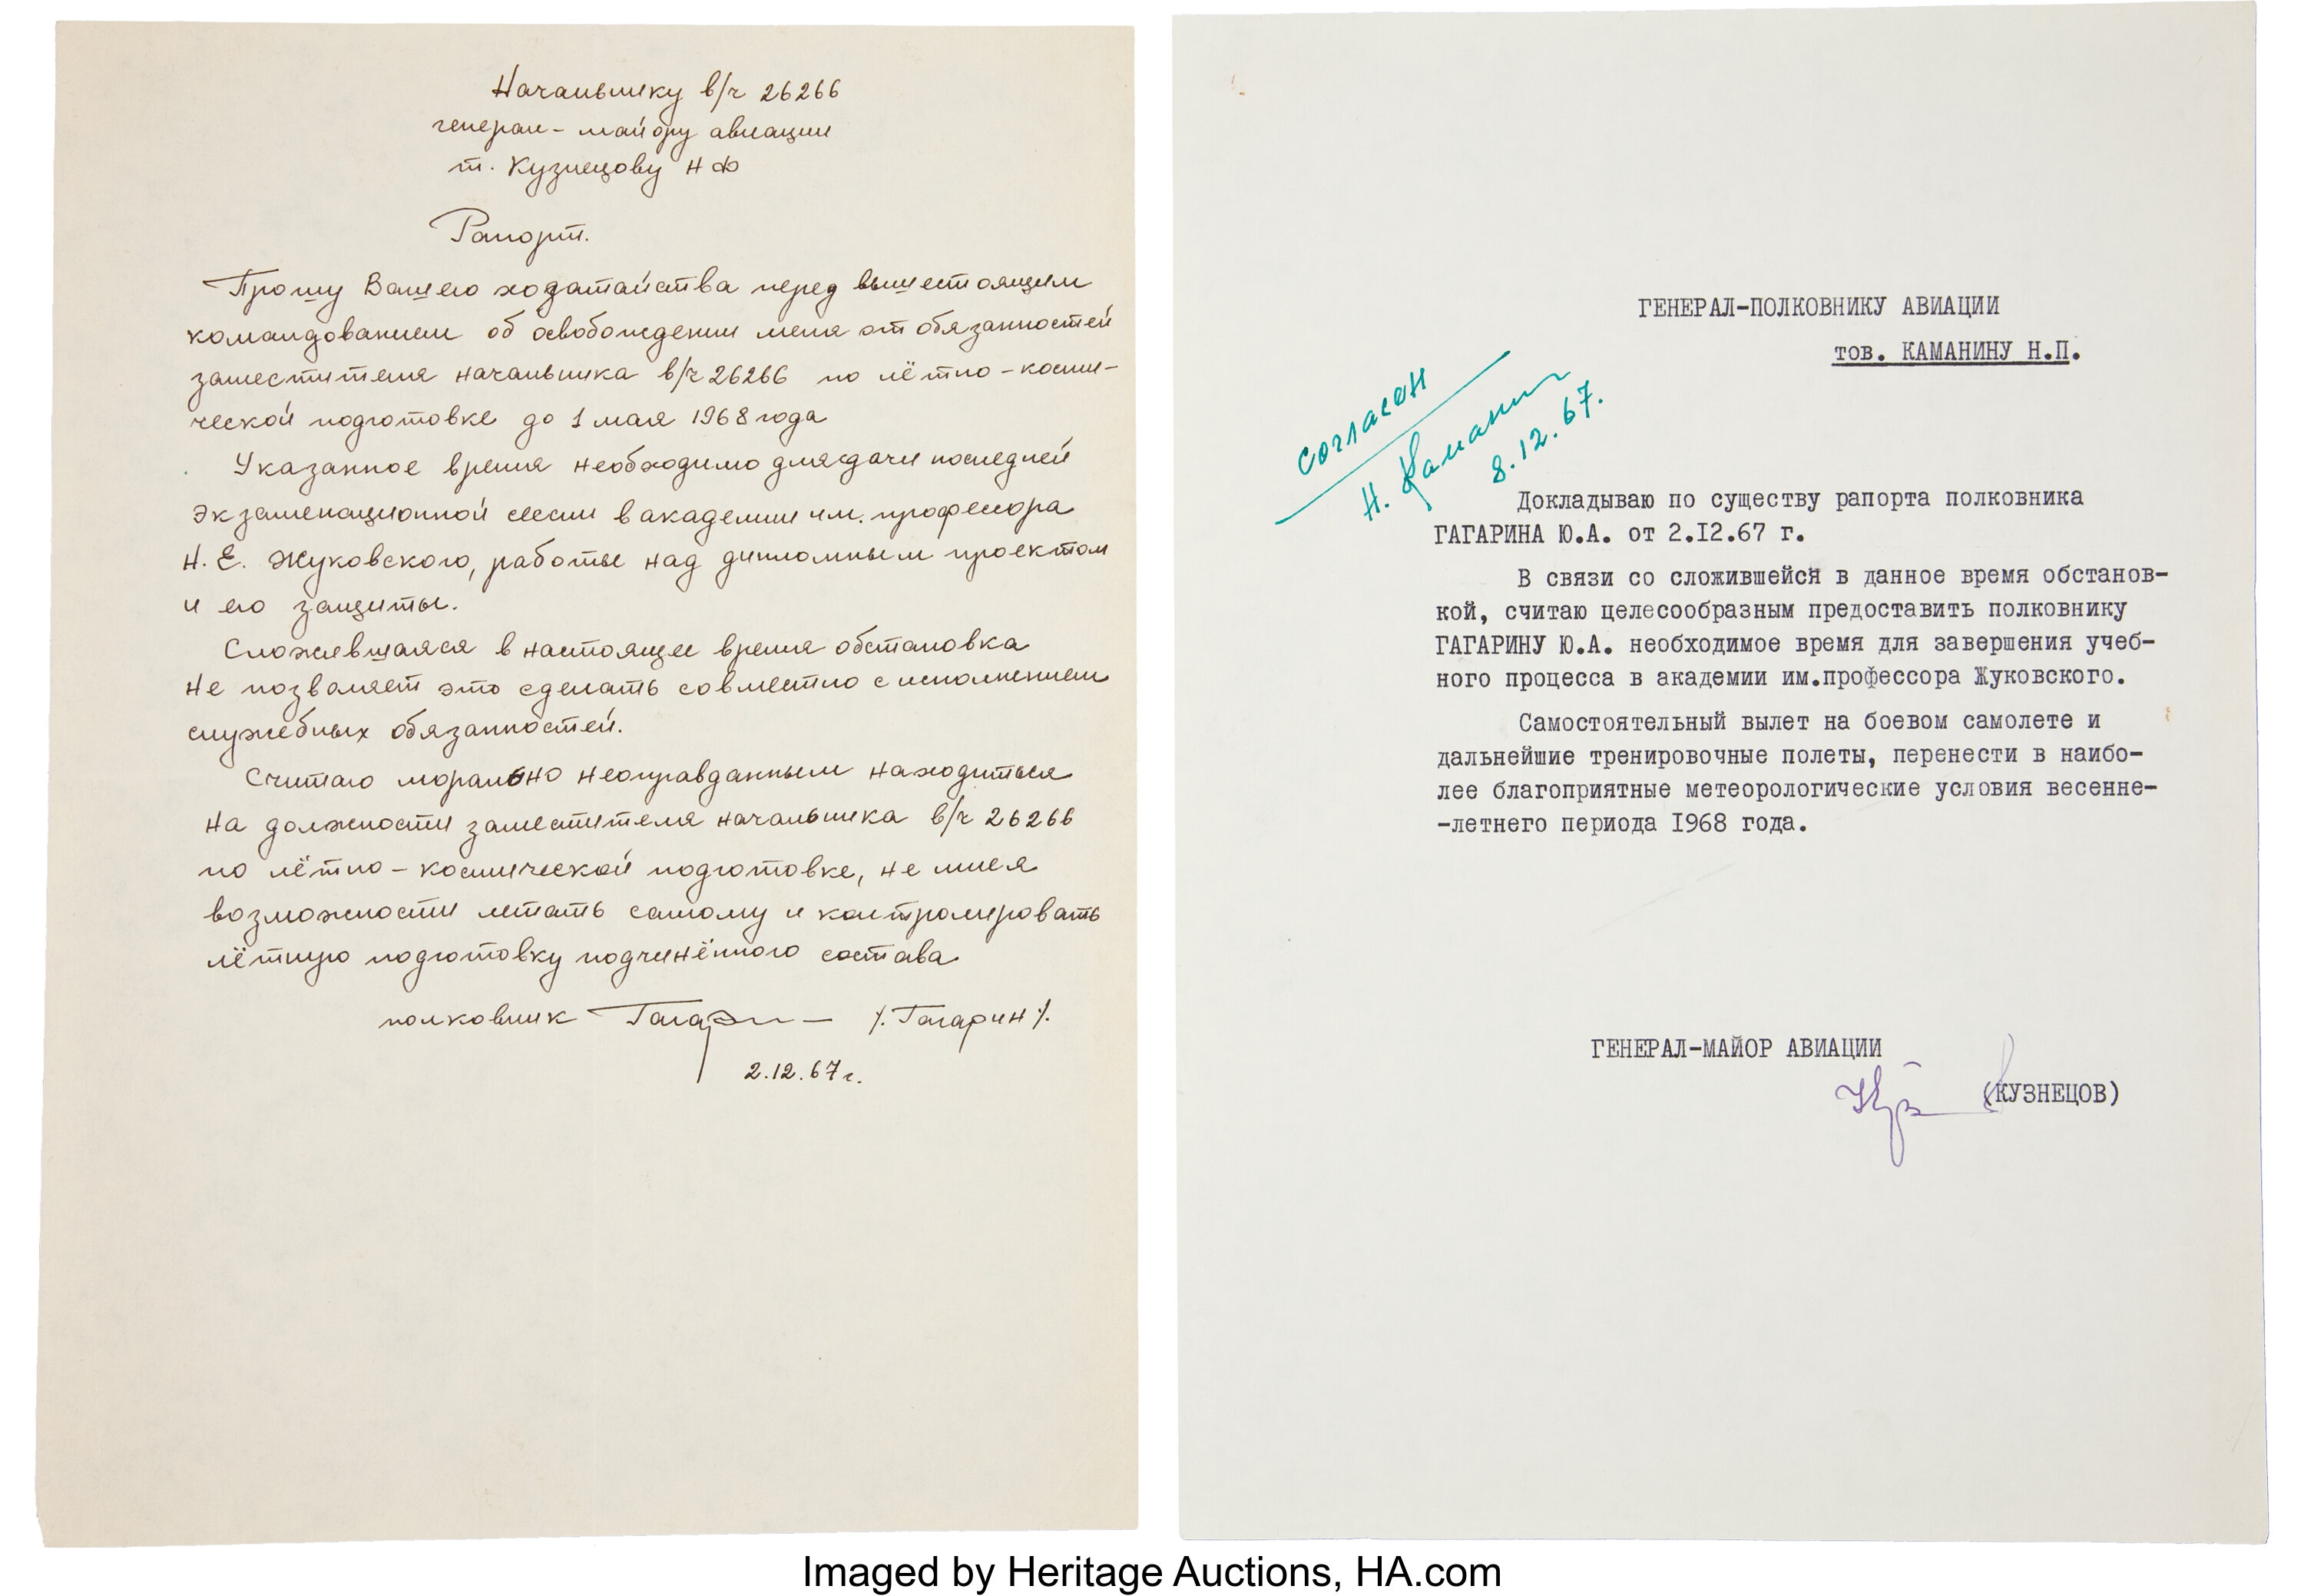 Начальнику в/ч 26266
генерал-майору авиации
т. Кузнецову Н Ф
Рапорт.
Прошу Вашего ходатайства перед вышестоящим
командованием об освобождении меня от обязанностей
заместителя начальника в/ч 26266 по лётно-косми-
ческой подготовке до 1 мая 1968 года
Указанное время необходимо для сдачи последней
экзаменационной сессии в академии им. профессора
Н. Е. Жуковского, работы над дипломным проектом
и его защиты.
Сложившаяся в настоящее время обстановка
не позволяет это сделать совместно с исполнением
служебных обязанностей.
Считаю морально неоправданным находиться
на должности заместителя начальника в/ч 26266
по лётно-космической подготовке, не имея
возможности летать самому и контролировать
лётную подготовку подчинённого состава
полковник Гагарин /. Гагарин /.
2.12.67 г.
ГЕНЕРАЛ-ПОЛКОВНИКУ АВИАЦИИ
тов. КАМАНИНУ Н.П.
согласен
Н. Каманин
8.12.67.
Докладываю по существу рапорта полковника
ГАГАРИНА Ю.А. от 2.I2.67 г.
В связи со сложившейся в данное время обстанов-
кой, считаю целесообразным предоставить полковнику
ГАГАРИНУ Ю.А. необходимое время для завершения учеб-
ного процесса в академии им.профессора Жуковского.
Самостоятельный вылет на боевом самолете и
дальнейшие тренировочные полеты, перенести в наибо-
лее благоприятные метеорологические условия весенне-
-летнего периода I968 года.
ГЕНЕРАЛ-МАЙОР АВИАЦИИ
Куз (КУЗНЕЦОВ)
Imaged by Heritage Auctions, HA.com